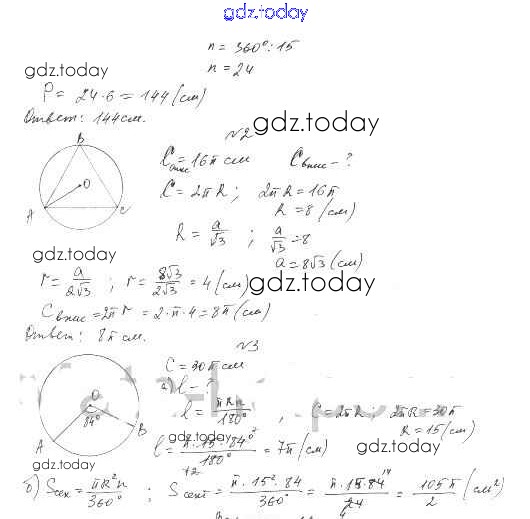 gdz.today
n = 360° : 15
n = 24
gdz.today
P = 24·6 = 144 (см)
Ответ: 144 см.
gdz.today
№2
B
O
A
C
C опис = 16π см    C впис - ?
C = 2πR ;  2πR = 16π
R = 8 (см)
R = a/√3 ;  a/√3 = 8
a = 8√3 (см)
gdz.today
r = a/2√3 ;  r = 8√3/2√3 = 4 (см)
gdz.today
C впис = 2πr = 2·π·4 = 8π (см)
Ответ: 8π см.
№3
C = 30π см
а) l - ?
O
84°
A
B
l = πRn/180° ,  C = 2πR ;  2πR = 30π
R = 15 (см)
gdz.today
l = π·15·84°/180° = 7π (см)
12
gdz.today
gdz.today
б) Sсек = πR²n/360° ;  Sсект = π·15²·84/360° = π·15·84/24 = 105π/2 (см²)